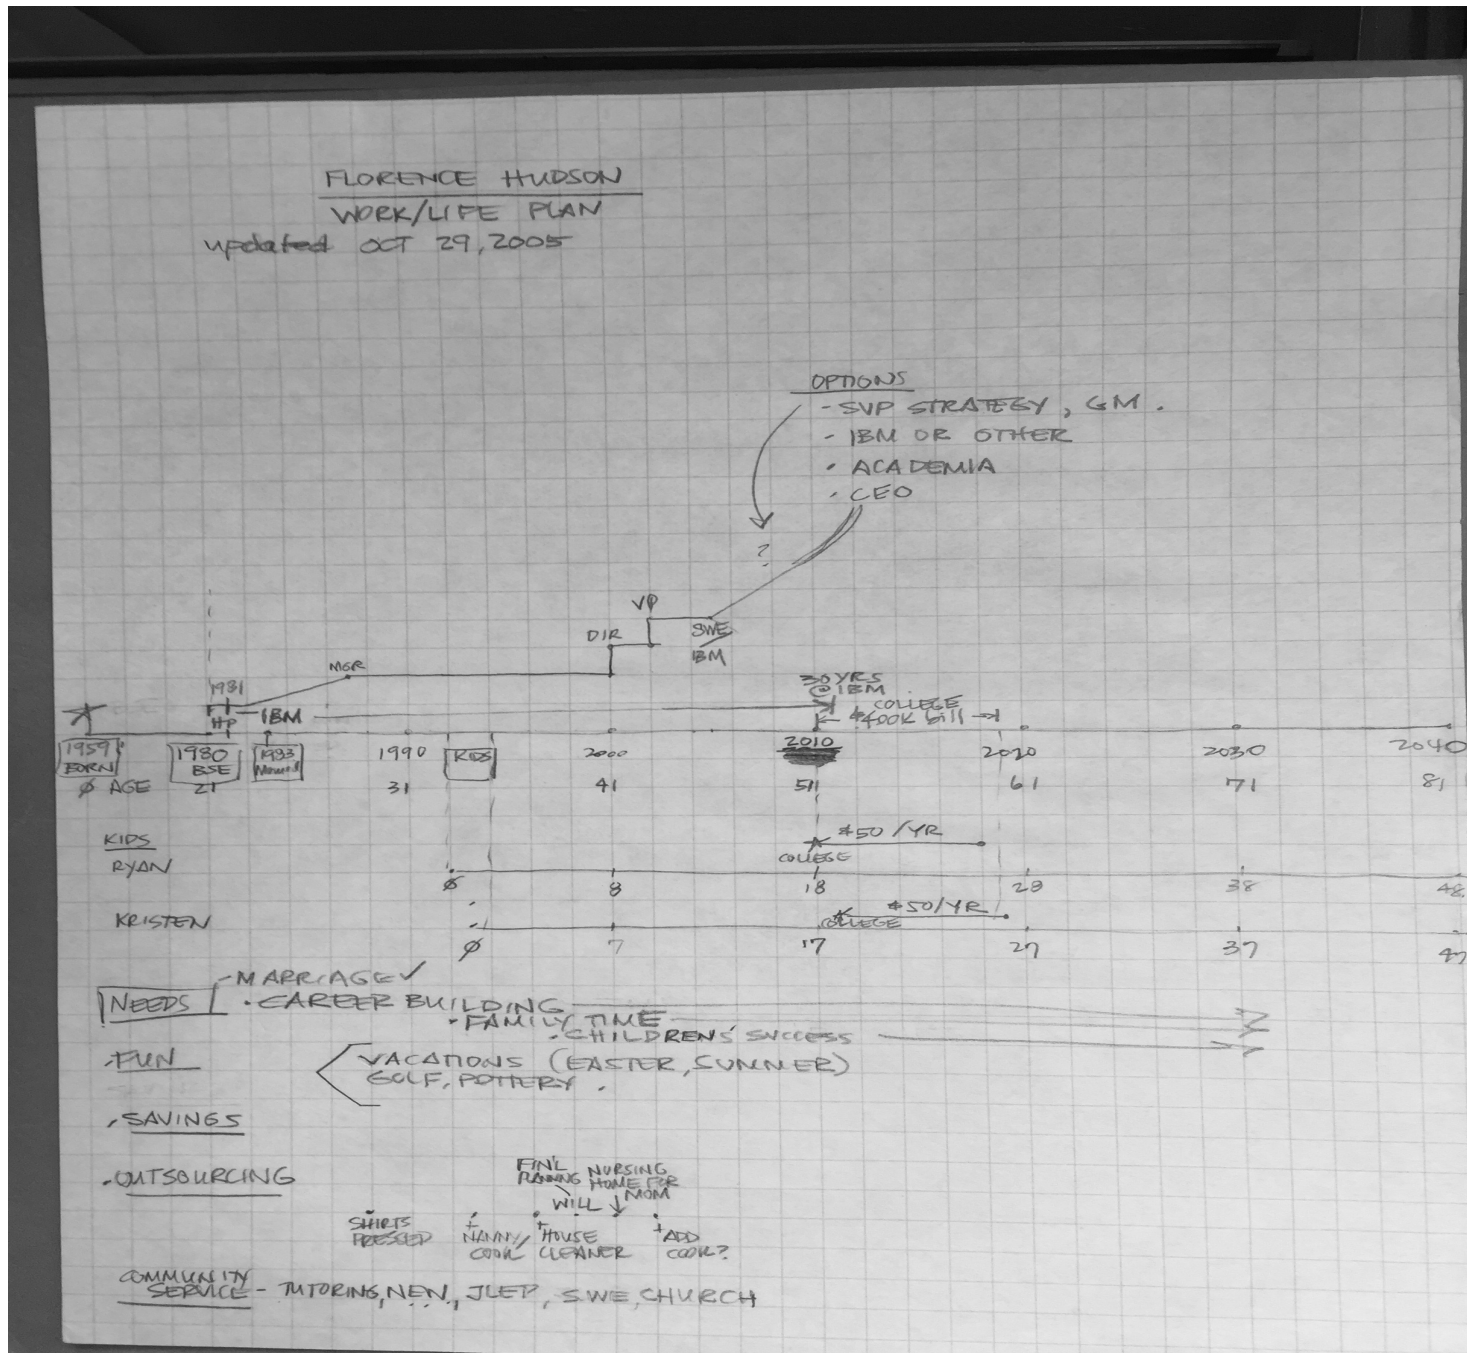 FLORENCE HUDSON
WORK/LIFE PLAN
updated OCT 29, 2005
OPTIONS
- SVP STRATEGY, GM.
- IBM OR OTHER
· ACADEMIA
· CEO
?
VP
DIR
SWE
IBM
MGR
1981
30 YRS
@ IBM
HP
IBM
COLLEGE
$400K bill
1959 BORN
1980 BSE
1983
1990
2000
2010
2020
2030
2040
Ø AGE 21 31 41 51 61 71 81
KIDS
RYAN
$50/YR
COLLEGE
Ø 8 18 28 38 48
KRISTEN
$50/YR
COLLEGE
Ø 7 17 27 37 47
NEEDS
- MARRIAGE ✓
· CAREER BUILDING
· FAMILY TIME
· CHILDRENS' SUCCESS
· FUN
VACATIONS (EASTER, SUMMER)
GOLF, POTTERY.
· SAVINGS
· OUTSOURCING
FIN'L PLANNING
WILL
NURSING HOME FOR MOM
SHIRTS PRESSED
+ NANNY/COOK
+ HOUSE CLEANER
+ ADD COOK?
COMMUNITY
SERVICE - TUTORING, NEN, JLEP, SWE, CHURCH